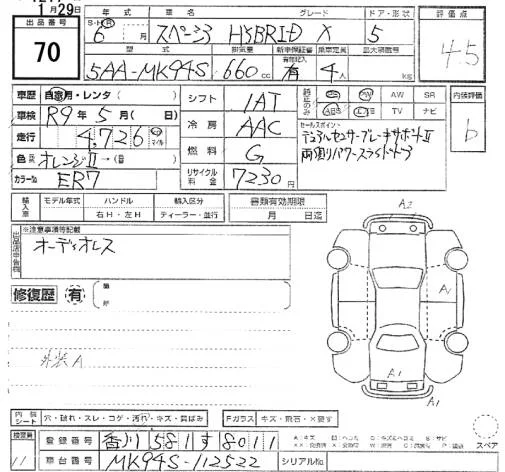 1月29日
出品番号
70
年式 車名 グレード ドア・形状 評価点
S・H・R
6 年 月 スペーシア HYBRID X 5
4.5
型式 排気量 新車保証書 乗車定員 最大積載量
有効記入
5AA-MK94S 660 cc 有 4 人 kg
車歴 自家用・レンタ( )
車検 R9年5月( 日)
走行 4,726 km マイル
色 元色 オレンジII→(色)
カラーNo ER7
シフト IAT
冷房 AAC
燃料 G
リサイクル料金 7230円
PS PW AW SR
ABS エアB TV ナビ
内装評価
b
セールスポイント・
デュアルセンサーブレーキサポートII
両側パワースライドドア
輸入車 モデル年式 ハンドル 輸入区分 書類有効期限
右H・左H ディーラー・並行 月 日迄
出品店申告欄
※注意事項等記載
オーディオレス
修復歴 有 箇所
外装A
A2
A1
A1
A1
内装 シート 穴・破れ・スレ・コゲ・汚れ・キズ・黄ばみ Fガラス キズ・飛石・X要す
検査員 11
登録番号 香川 581 す 8011
車台番号 MK94S-112522 シリアルNo.
スペア